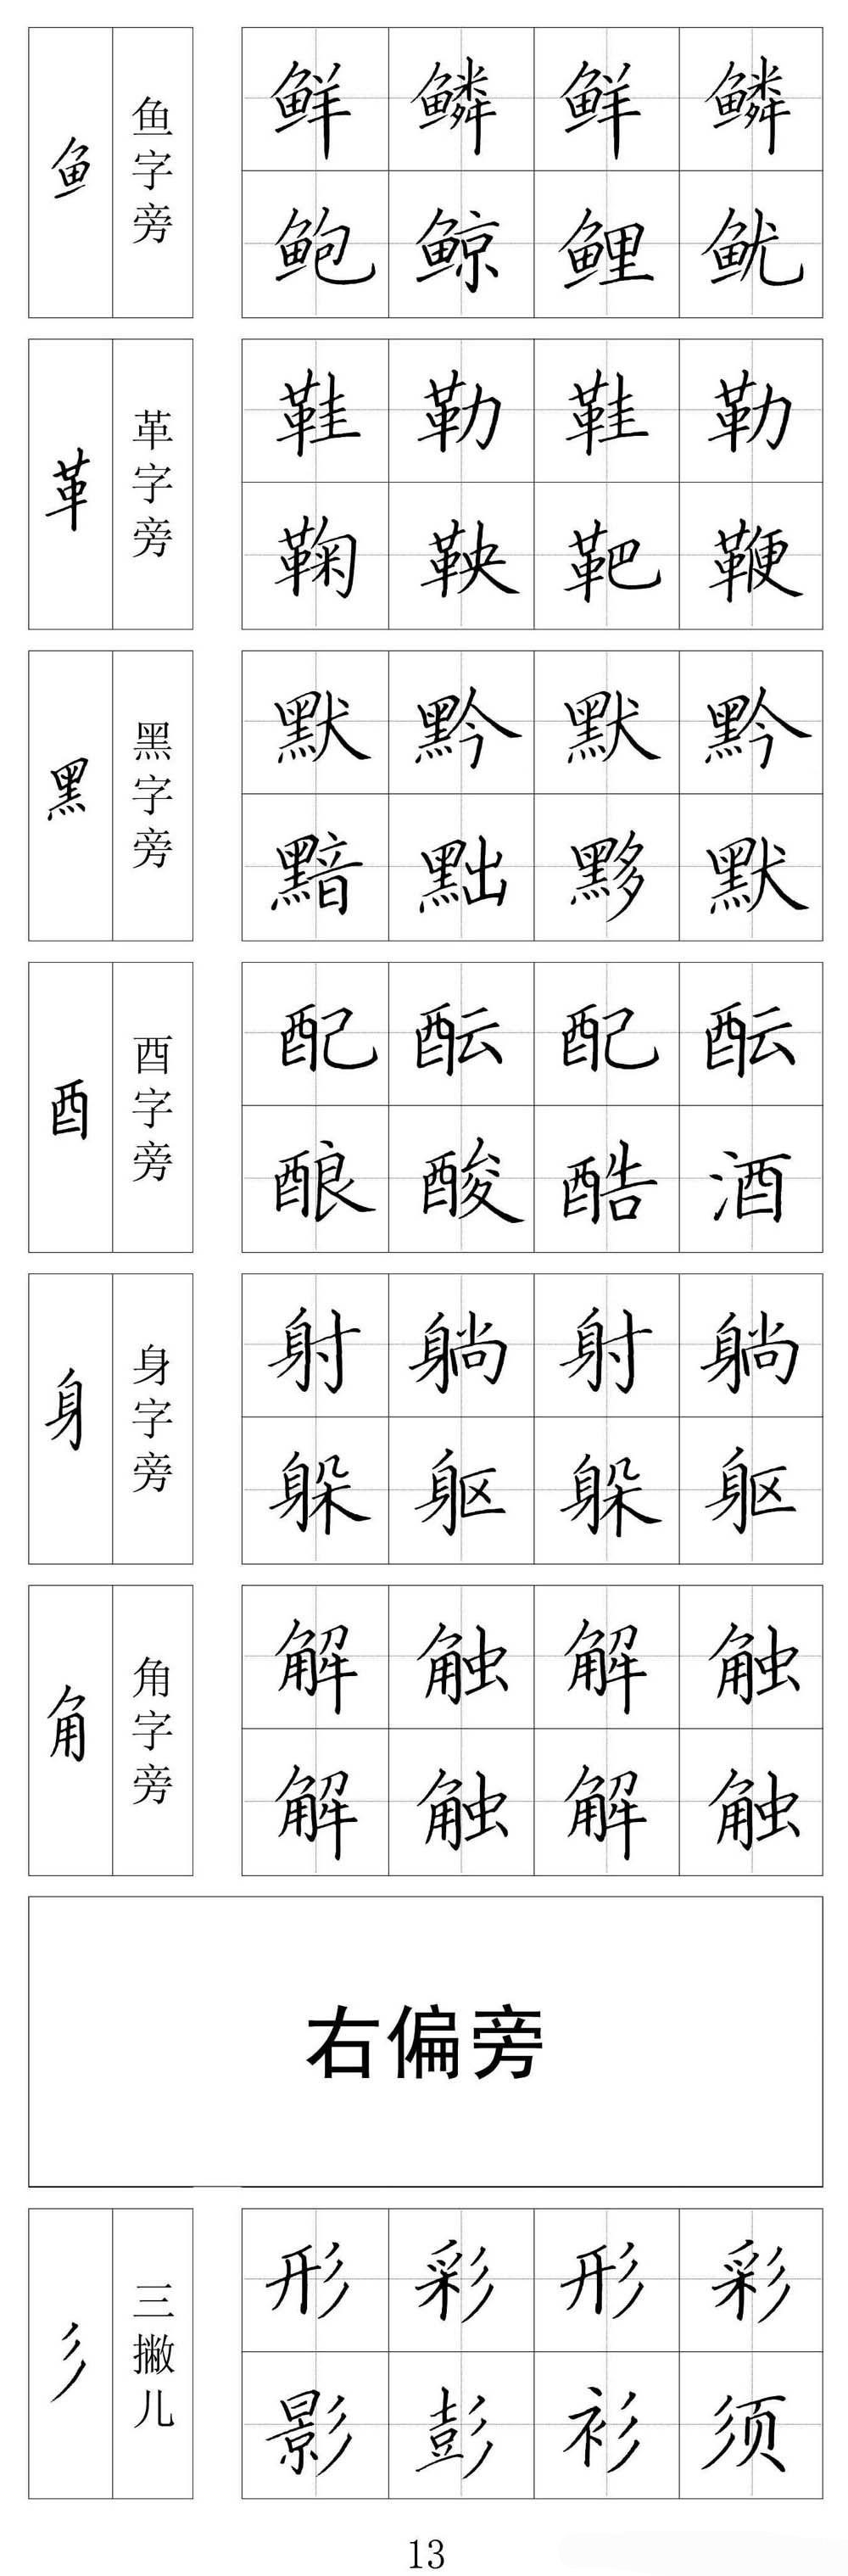 鱼
鱼字旁
鲜鳞鲜鳞
鲍鲸鲤鱿
革
革字旁
鞋勒鞋勒
鞠鞅靶鞭
黑
黑字旁
默黔默黔
黯黜黟默
酉
西字旁
配酝配酝
酿酸酷酒
身
身字旁
射躺射躺
躲躯躲躯
角
角字旁
解触解触
解触解触
右偏旁
彡
三撇儿
形彩形彩
影彭衫须
13